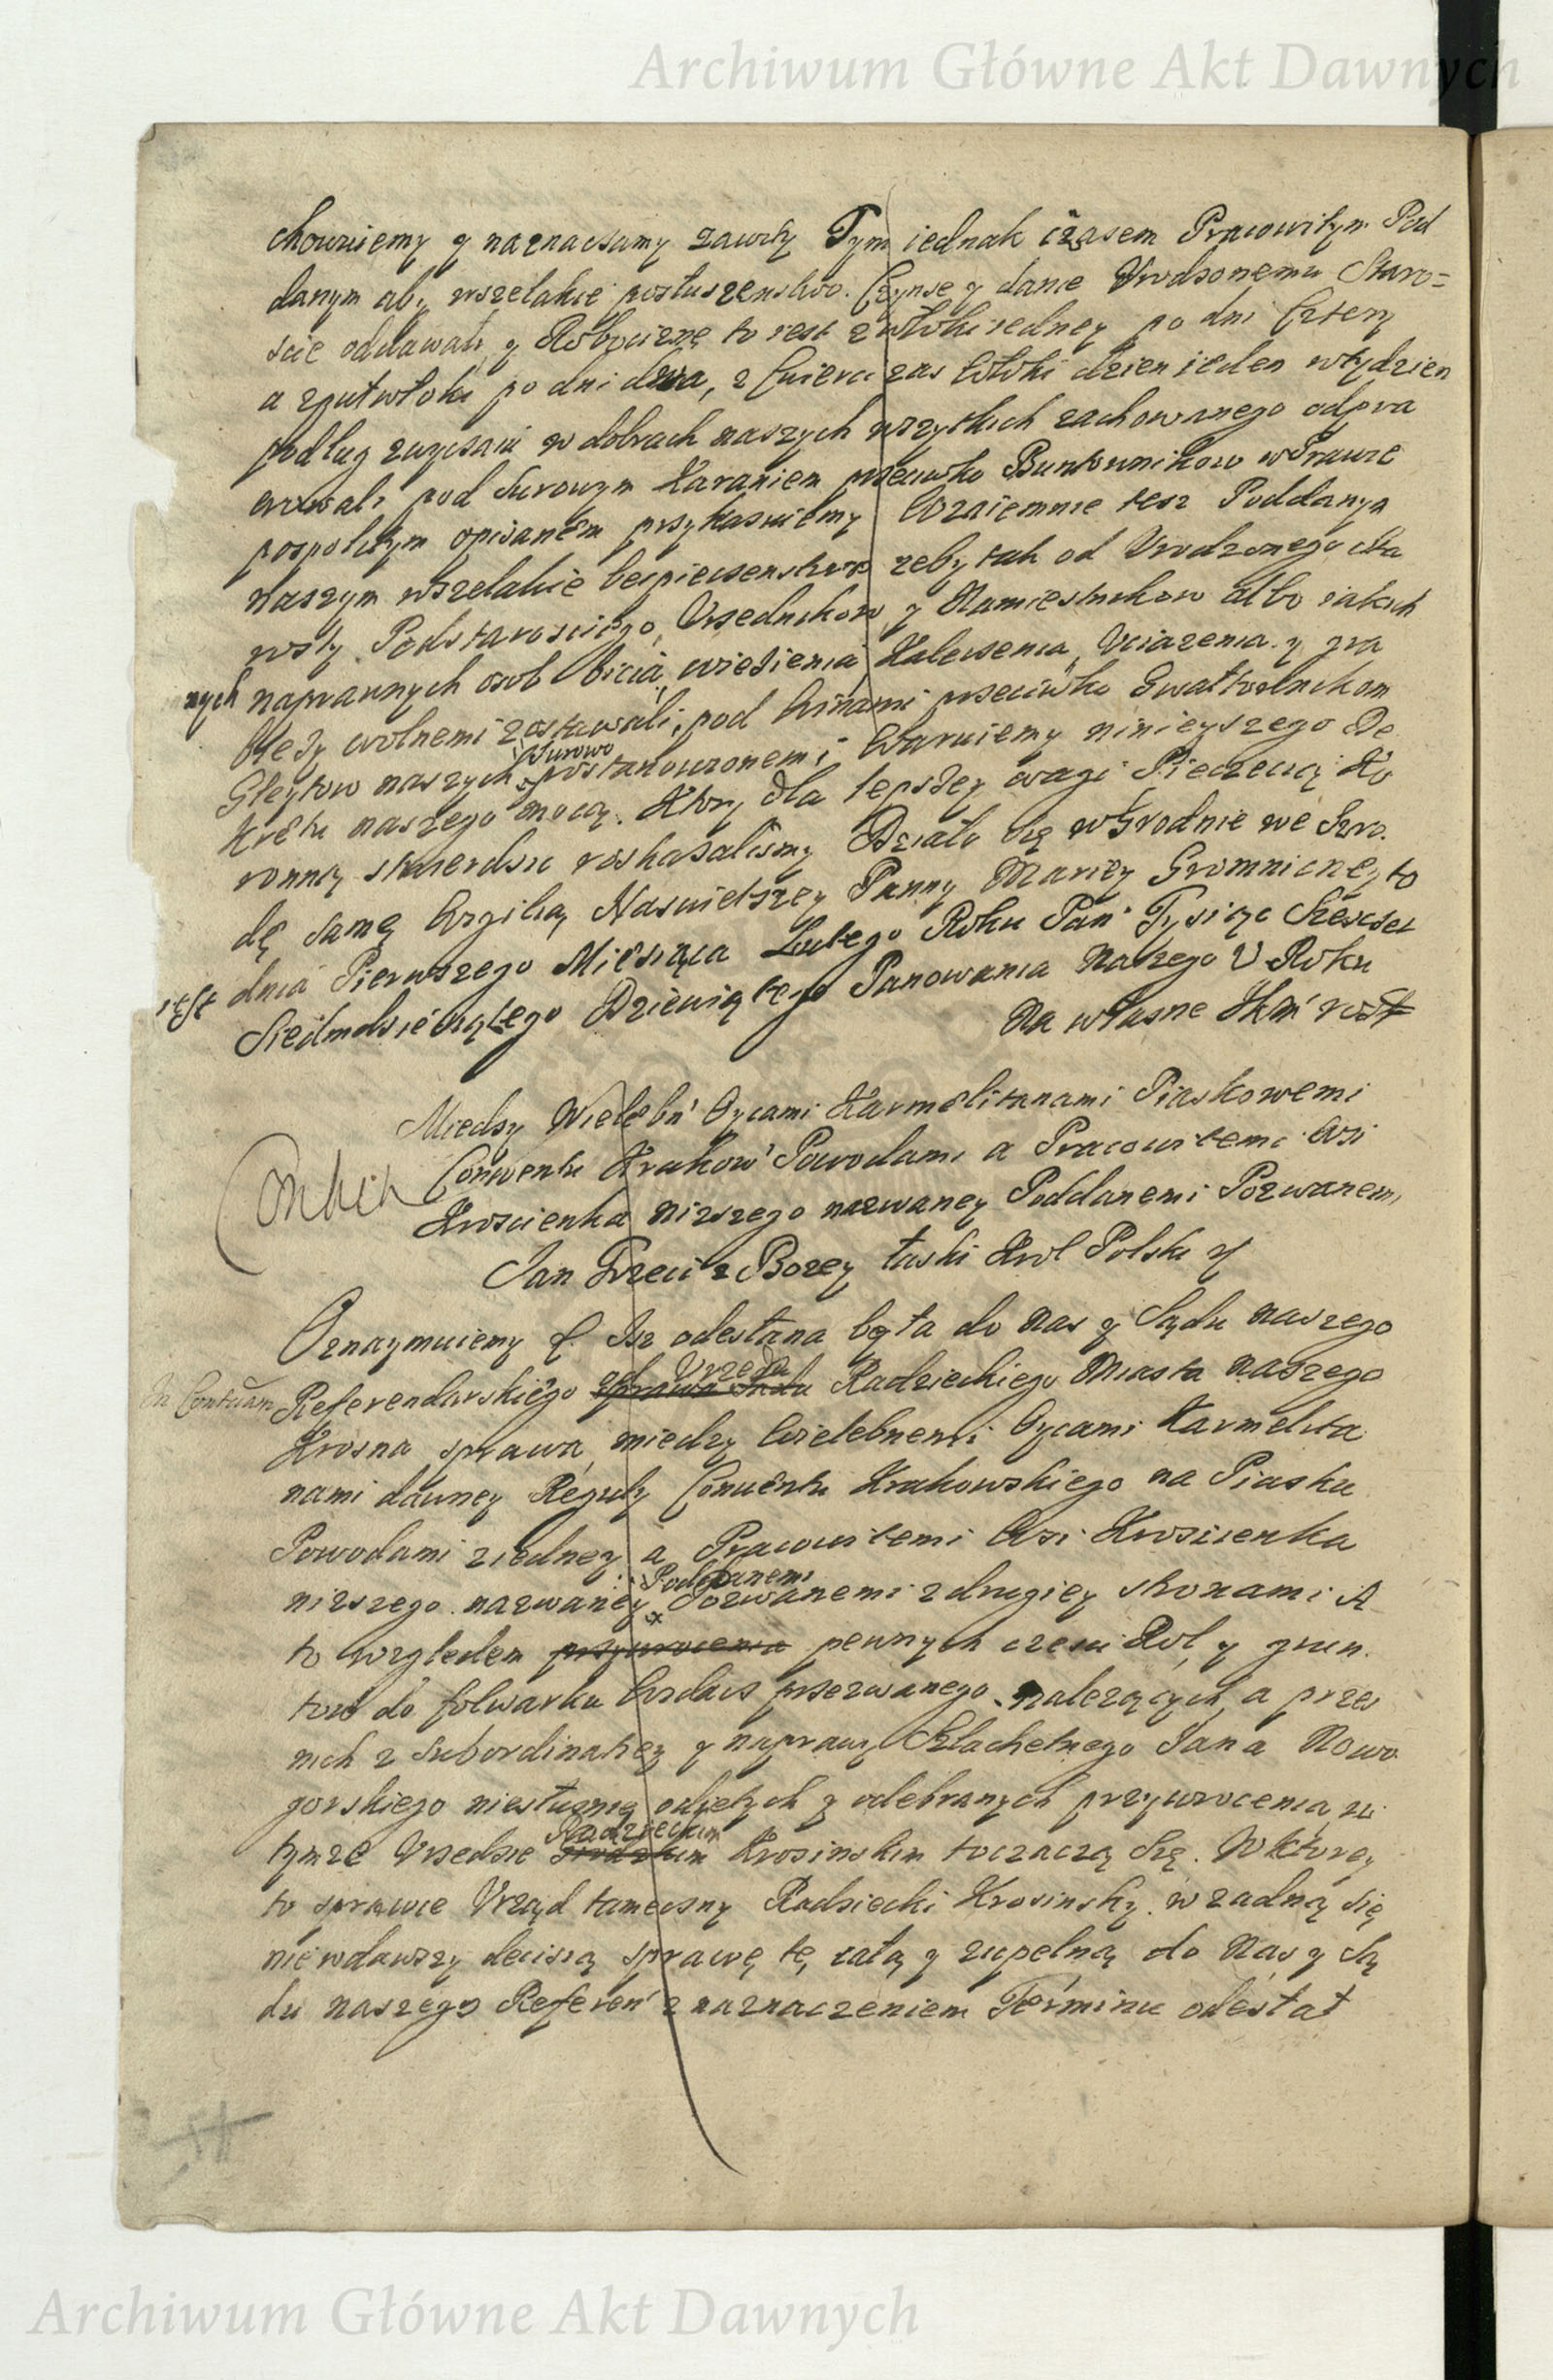 Archiwum Główne Akt Dawnych
chowuiemy y naznaczamy zawity Tym iednak czasem Pracowitym Pod
danym aby wszelakie posłuszenstwo. Czynsze y danie Vrodzonemu Staro=
scie oddawali, y Robociznę to iest z włoki iedney po dni Cztery
a z puł włoki po dni dwa, z Cwierci zas Włoki dzien ieden w tydzien
podług zwyczaiu w dobrach naszych wszytkich zachowanego odpra
wowali pod surowym Karaniem przeciwko Buntownikow w Prawie
pospolitym opisanem przykazuiemy Wzaiemnie tesz Poddanym
naszym wszelakie bezpieczenstwo zeby tak od Vrodzonego Sta
rosty Podstarosciego, Vrzednikow y Namiestnikow albo iakich
nych naprawnych osob bicia, wiezienia, Kaleczenia, Vciazenia y gra
biezy wolnemi zostawali, pod winami przeciwko Gwałtownikom
Gleytow naszych surowo postanowionemi Waruiemy ninieyszego De
kretu naszego mocą. Ktory dla lepszey wagi Pieczecią Ko
ronną stwierdzic roskazalismy Działo się w Grodnie we Szro
dę samą Wigilią Naswietszey Panny Mariey Gromniczney to
iest dnia Pierwszego Miesiąca Lutego Roku Pan Tysiąc Szescset
Siedmdziesiątego Dziewiątego Panowania Naszego V Roku
Na własne JKM rost
Miedzy Wielebn Oycami Karmelitanami Piaskowemi
Conventu Krakow Powodami a Pracowitemi Wsi
Kroscienka nizszego nazwaney Poddanemi Pozwanemi
Jan Trzeci z Bozey łaski Krol Polski y
Oznaymuiemy &. Isz odesłana była do Nas y Sądu naszego
In Contuam Referendarskiego od Vrzedu Radzieckiego Miasta naszego
Krosna sprawa, miedzy Wielebnemi Oycami Karmelita
nami dawney Reguły Conventu Krakowskiego na Piasku
Powodami z iedney a Pracowitemi Wsi Kroscienka
nizszego nazwaney Poddanemi Pozwanemi z drugiey stronami A
to wzgledem przywrocenia pewnych czesci Rol, y grun
tow do folwarku przezwanego nalezących, a przez
nich z subordinatiey y naprawy Szlachetnego Jana Nowo
gorskiego niesłusznie odietych y odebranych przywrocenia w
tymze Vrzedzie Radzieckim Krosinskim toczaczą się. W ktorey
to sprawie Vrząd tameczny Radziecki Krosinsky w zadną się
niewdawszy decisią sprawę tę, całą y zupelną do Nas y Są
du naszego Referen z naznaczeniem Terminu odesłał
Archiwum Główne Akt Dawnych